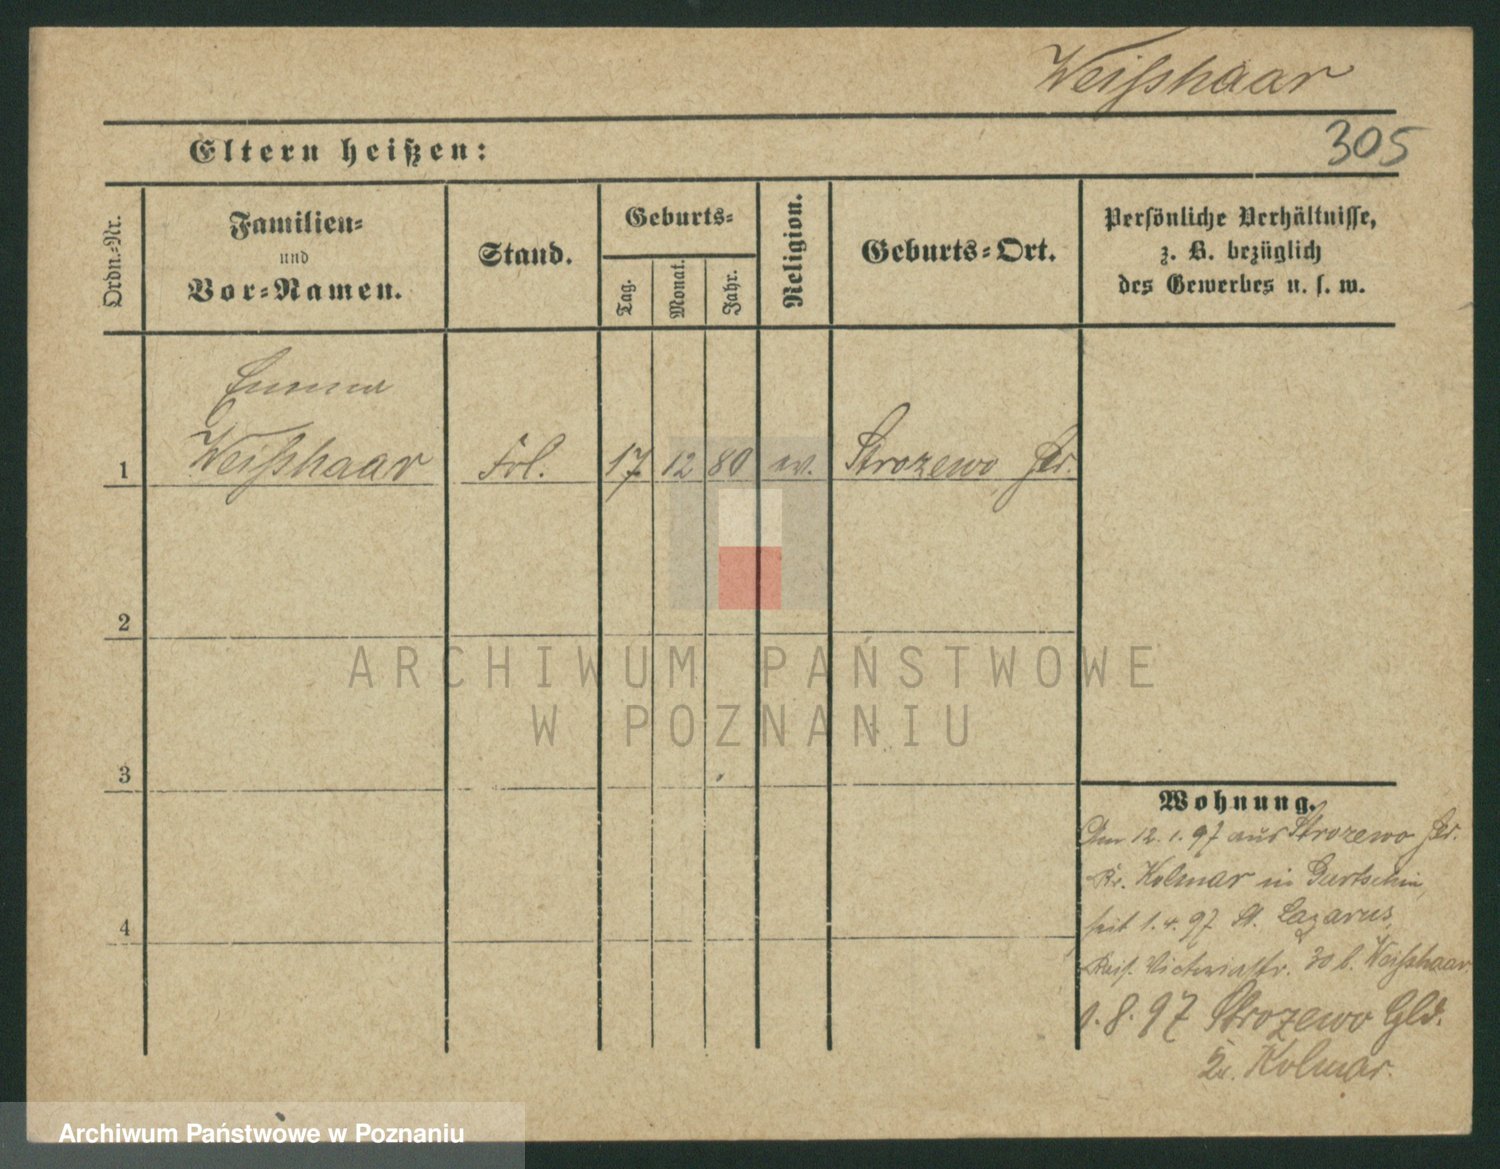 Weißhaar
Eltern heißen:
305
Ordn.-Nr.
Familien-
und
Vor-Namen.
Stand.
Geburts-
Tag.
Monat.
Jahr.
Religion.
Geburts-Ort.
Persönliche Verhältnisse,
z. B. bezüglich
des Gewerbes u. s. w.
Emma
1 Weißhaar Frl. 17 12 80 ev. Strozewo
2
ARCHIWUM PAŃSTWOWE
W POZNANIU
3
4
Wohnung.
Den 12.1.97 aus Strozewo
Kr. Kolmar in Gurtschin,
seit 1.4.97 St. Lazarus,
Victoriastr. 30 b. Weißhaar
1.8.97 Strozewo Gld.
Kolmar.
Archiwum Państwowe w Poznaniu